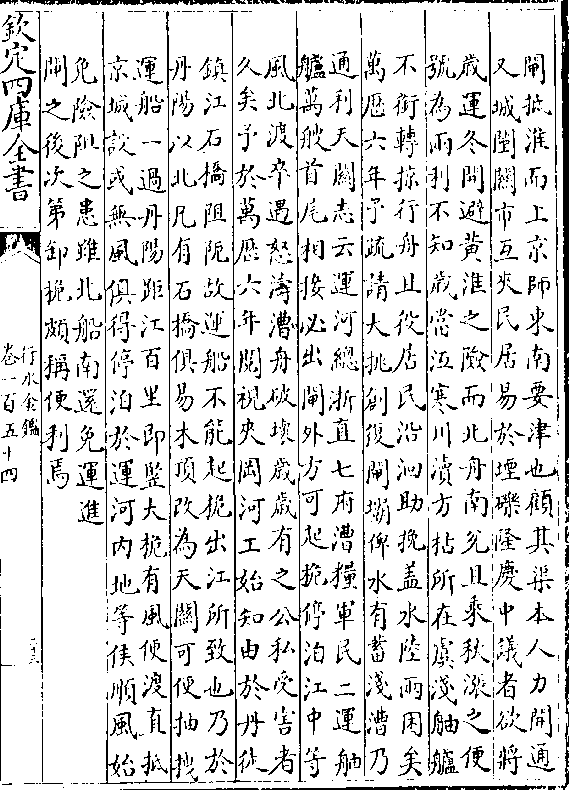 閘抵淮而上京師東南要津也顧其渠本人力開通
又城闉闤市互夾民居易於堙礫隆慶中議者欲將
歲運冬間避黃淮之險而北舟南兊且乘秋漲之便
號為兩利不知歲常沍寒川瀆方枯所在虞淺舳艫
不銜轉掠行舟且役居民沿洄助挽蓋水陸兩困矣
萬歷六年予疏請大挑創復閘壩俾水有蓄淺漕乃
通利天關志云運河總浙直七府漕糧軍民二運舳
艫萬艘首尾相接必出閘外方可起桅停泊江中等
風北渡卒遇怒濤漕舟破壞歲歲有之公私受害者
久矣予於萬歷六年閱視夾岡河工始知由於丹徒
鎮江石橋阻阨故運船不能起桅出江所致也乃於
丹陽以北凡有石橋俱易木頂改為天關可便抽拽
運船一過丹陽距江百里即豎大桅有風便渡直抵
京城設或無風俱得停泊於運河內地等候順風始
免險阻之患雖北船南還免運進
閘之後次第卸桅頗稱便利焉
欽定四庫全書
行水金鑑
卷一百五十四